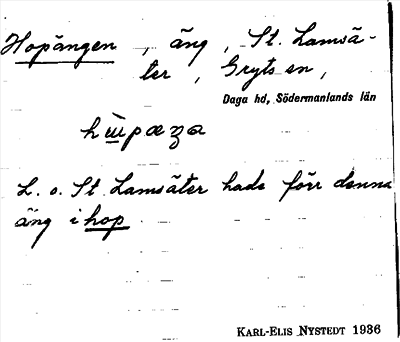 Hopängen, äng, St. Lamsä-
ter, Gryts sn,
Daga hd, Södermanlands län
L. o. St. Lamsäter hade förr denna
äng i hop
KARL-ELIS NYSTEDT 1936